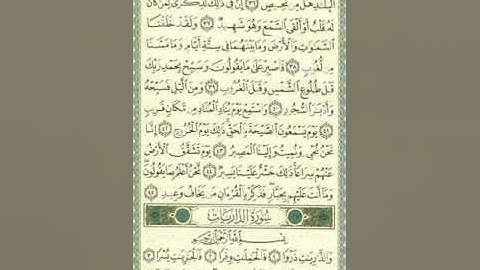 ٱلْبِلَٰدِ هَلْ مِن مَّحِيصٍ ٣٦ إِنَّ فِى ذَٰلِكَ لَذِكْرَىٰ لِمَن كَانَ
لَهُۥ قَلْبٌ أَوْ أَلْقَى ٱلسَّمْعَ وَهُوَ شَهِيدٌ ٣٧ وَلَقَدْ خَلَقْنَا
ٱلسَّمَٰوَٰتِ وَٱلْأَرْضَ وَمَا بَيْنَهُمَا فِى سِتَّةِ أَيَّامٍ وَمَا مَسَّنَا
مِن لُّغُوبٍ ٣٨ فَٱصْبِرْ عَلَىٰ مَا يَقُولُونَ وَسَبِّحْ بِحَمْدِ رَبِّكَ
قَبْلَ طُلُوعِ ٱلشَّمْسِ وَقَبْلَ ٱلْغُرُوبِ ٣٩ وَمِنَ ٱلَّيْلِ فَسَبِّحْهُ
وَأَدْبَٰرَ ٱلسُّجُودِ ٤٠ وَٱسْتَمِعْ يَوْمَ يُنَادِ ٱلْمُنَادِ مِن مَّكَانٍ قَرِيبٍ
٤١ يَوْمَ يَسْمَعُونَ ٱلصَّيْحَةَ بِٱلْحَقِّ ذَٰلِكَ يَوْمُ ٱلْخُرُوجِ ٤٢ إِنَّا
نَحْنُ نُحْىِۦ وَنُمِيتُ وَإِلَيْنَا ٱلْمَصِيرُ ٤٣ يَوْمَ تَشَقَّقُ ٱلْأَرْضُ
عَنْهُمْ سِرَاعًا ذَٰلِكَ حَشْرٌ عَلَيْنَا يَسِيرٌ ٤٤ نَّحْنُ أَعْلَمُ بِمَا يَقُولُونَ
وَمَآ أَنتَ عَلَيْهِم بِجَبَّارٍ فَذَكِّرْ بِٱلْقُرْءَانِ مَن يَخَافُ وَعِيدِ ٤٥
سُورَةُ ٱلذَّارِيَاتِ
بِسْمِ ٱللَّهِ ٱلرَّحْمَٰنِ ٱلرَّحِيمِ
وَٱلذَّٰرِيَٰتِ ذَرْوًا ١ فَٱلْحَٰمِلَٰتِ وِقْرًا ٢ فَٱلْجَٰرِيَٰتِ يُسْرًا ٣